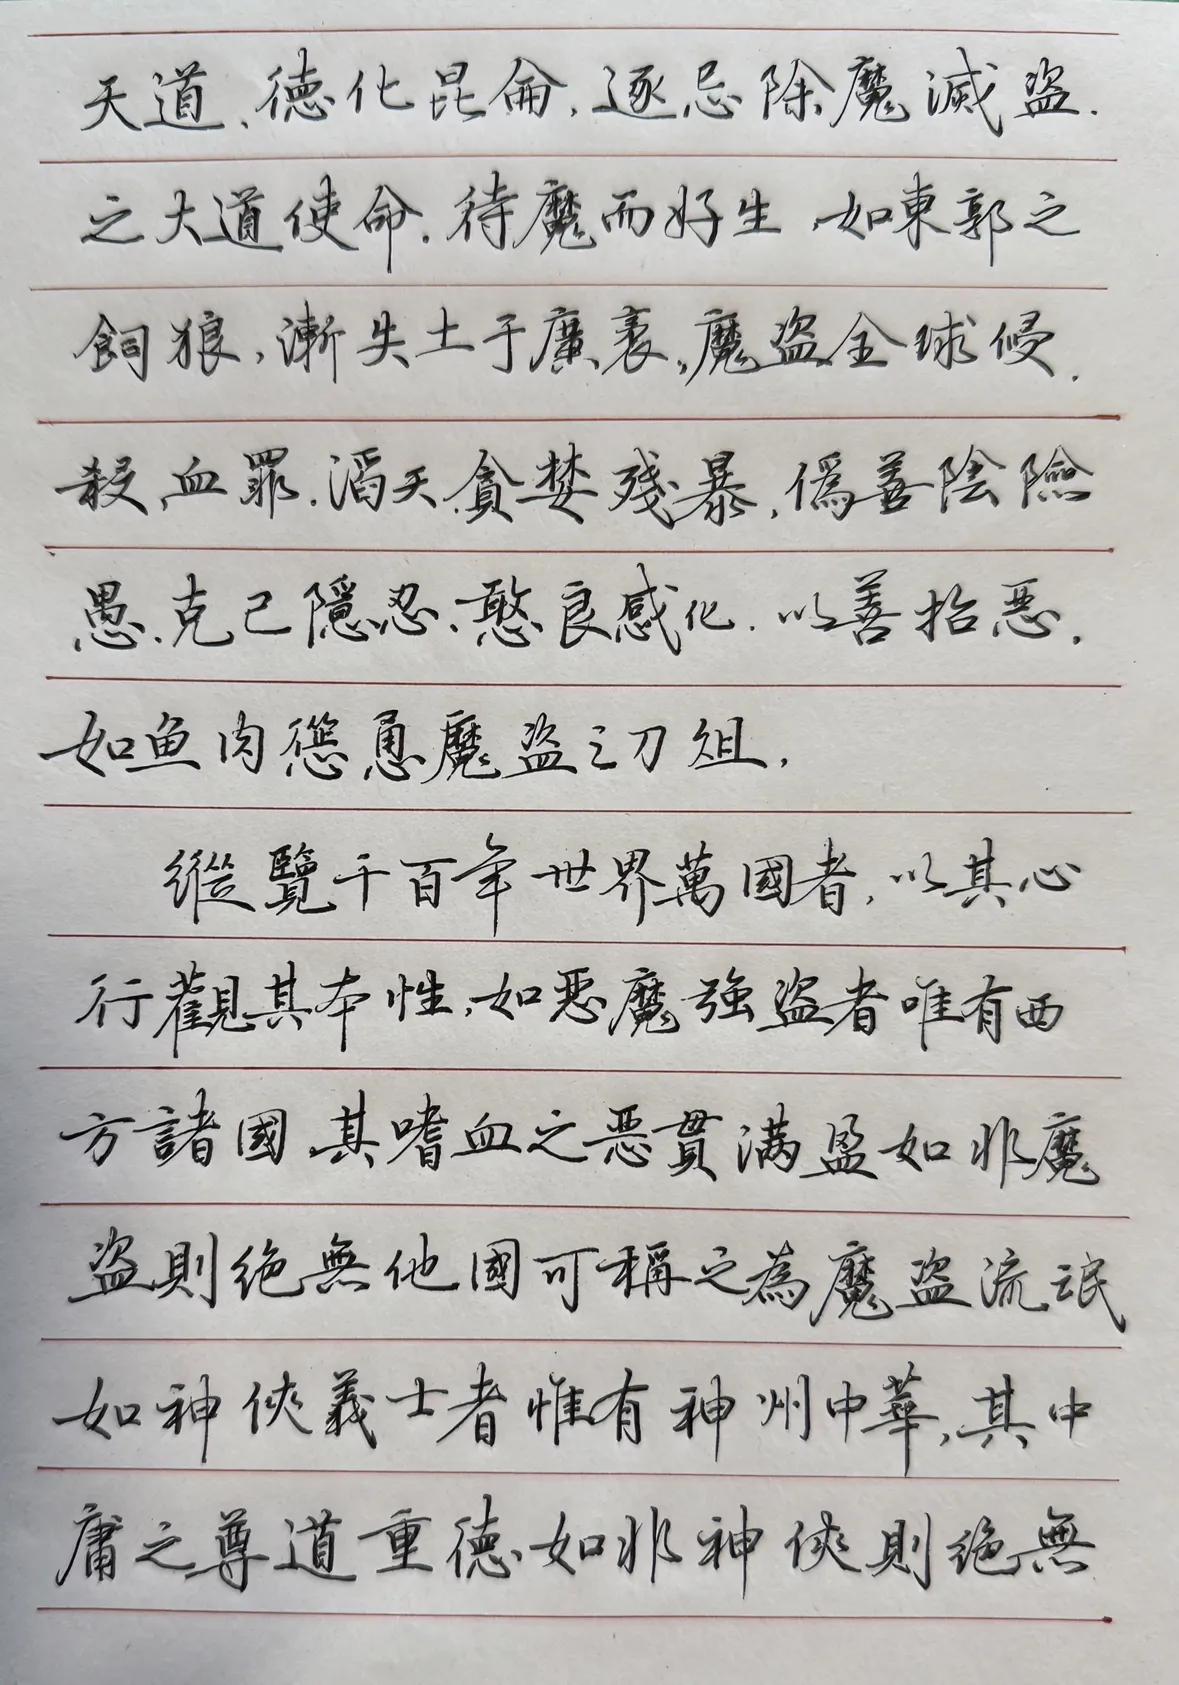 天道、德化昆侖，逐忌除魔滅盜．
之大道使命．待魔而好生，如東郭之
飼狼，漸失土于廣袤，魔盜全球侵．
殺，血罪．滔天，貪婪殘暴，偽善陰險
愚．克己隱忍、憨良感化．以善抬惡．
如鱼肉慫恿魔盜之刀俎．
縱覽千百年世界萬國者，以其心
行觀其本性，如惡魔強盜者唯有西
方諸國，其嗜血之惡貫满盈如非魔
盜則绝無他國可稱之為魔盜流氓
如神俠義士者惟有神州中華，其中
庸之尊道重德，如非神俠則绝無